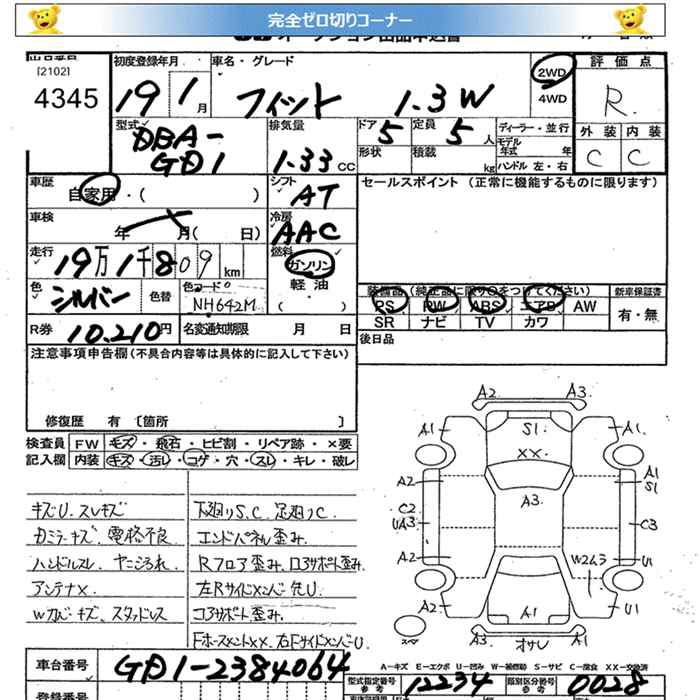 完全ゼロ切りコーナー
オークション出品申込書
[2102]
4345
初度登録年月
19 1月
車名・グレード
フィット 1.3W
2WD
4WD
評価点
R
外装 内装
C C
型式
DBA-
GD1
排気量
1.33CC
ドア 5
定員 5人
形状
積載 kg
ディーラー・並行
モデル年式 年
ハンドル 左・右
車歴
自家用・( )
シフト
AT
セールスポイント (正常に機能するものに限ります)
車検
年 月( 日)
冷房
AAC
走行
19万1千809km
燃料
ガソリン
軽油
( )
色
シルバー
色替
色コードNo
NH642M
装備品(純正品に限り○をつけてください)
PS PW ABS エアB AW
SR ナビ TV カワ
新車保証書
有・無
R券 10,210円
名変通知期限 月 日
後日品
注意事項申告欄(不具合内容等は具体的に記入して下さい)
修復歴 有 〔箇所 〕
検査員 FW キズ・飛石・ヒビ割・リペア跡・×要
記入欄 内装 キズ・汚レ・コゲ・穴・スレ・キレ・破レ
キズU.スレキズ
カミラーキズ、電格不良
ハンドルスレ、ヤニヨゴれ
アンテナ×
Wカバーキズ、スタッドレス
下廻りS.C 足廻りC
エンドパネル歪み.
Rフロア歪み.ロアサポート歪み.
左Rサイドメンバー先U.
コアサポート歪み.
FホースメントXX.右FサイドメンバーU
A2 A3
A1 S1 A1
XX
A2 A3 A1
S1
C2
UA3 C3
A2 W2A3 U1
A2 A1 U1
A3 オサレ A1
A-キズ E-エクボ U-凹み W-補修跡 S-サビ C-腐食 XX-交換済
車台番号 GD1-2384064
型式指定番号 12234
類別区分番号 0028
参考
登録番号